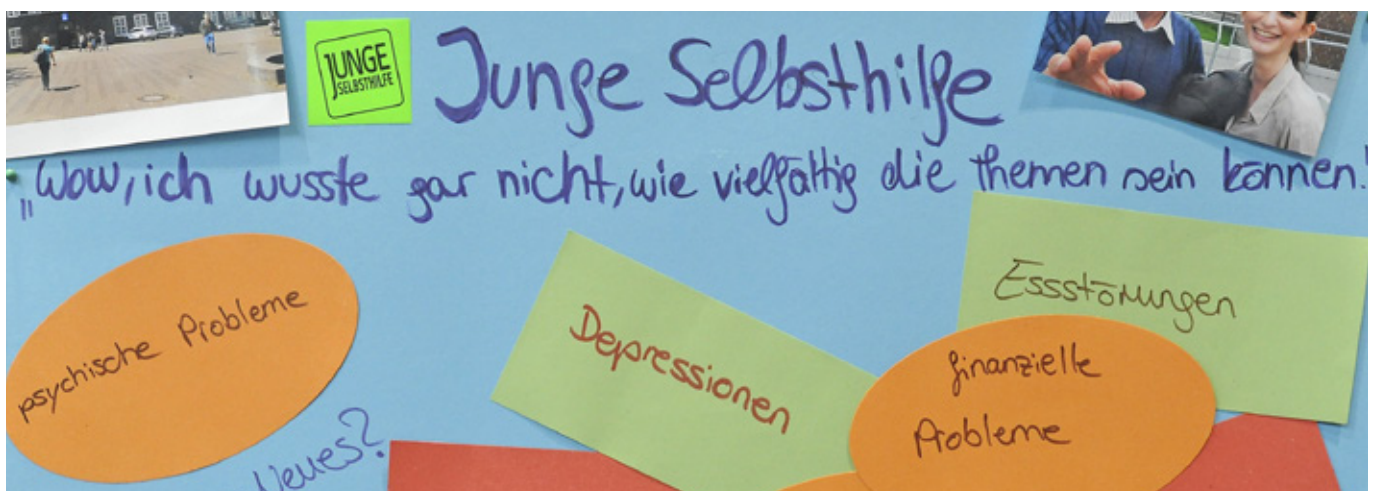 JUNGE
SELBSTHILFE
Junge Selbsthilfe
„Wow, ich wusste gar nicht, wie vielfältig die Themen sein können!
psychische Probleme
Depressionen
Essstörungen
finanzielle
Probleme
Neues?